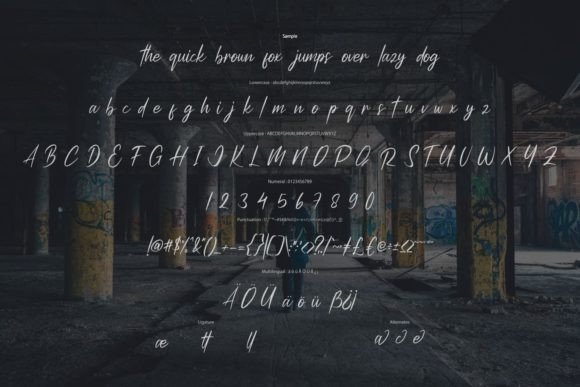 Sample
the quick brown fox jumps over lazy dog
Lowercase : abcdefghijklmnopqrstuvwxyz
a b c d e f g h i j k l m n o p q r s t u v w x y z
Uppercase : ABCDEFGHIJKLMNOPQRSTUVWXYZ
A B C D E F G H I J K L M N O P Q R S T U V W X Y Z
Numeral : 0123456789
1 2 3 4 5 6 7 8 9 0
Punctuation :
Multilingual :
Ä Ö Ü ä ö ü
Ligature Alternates
æ